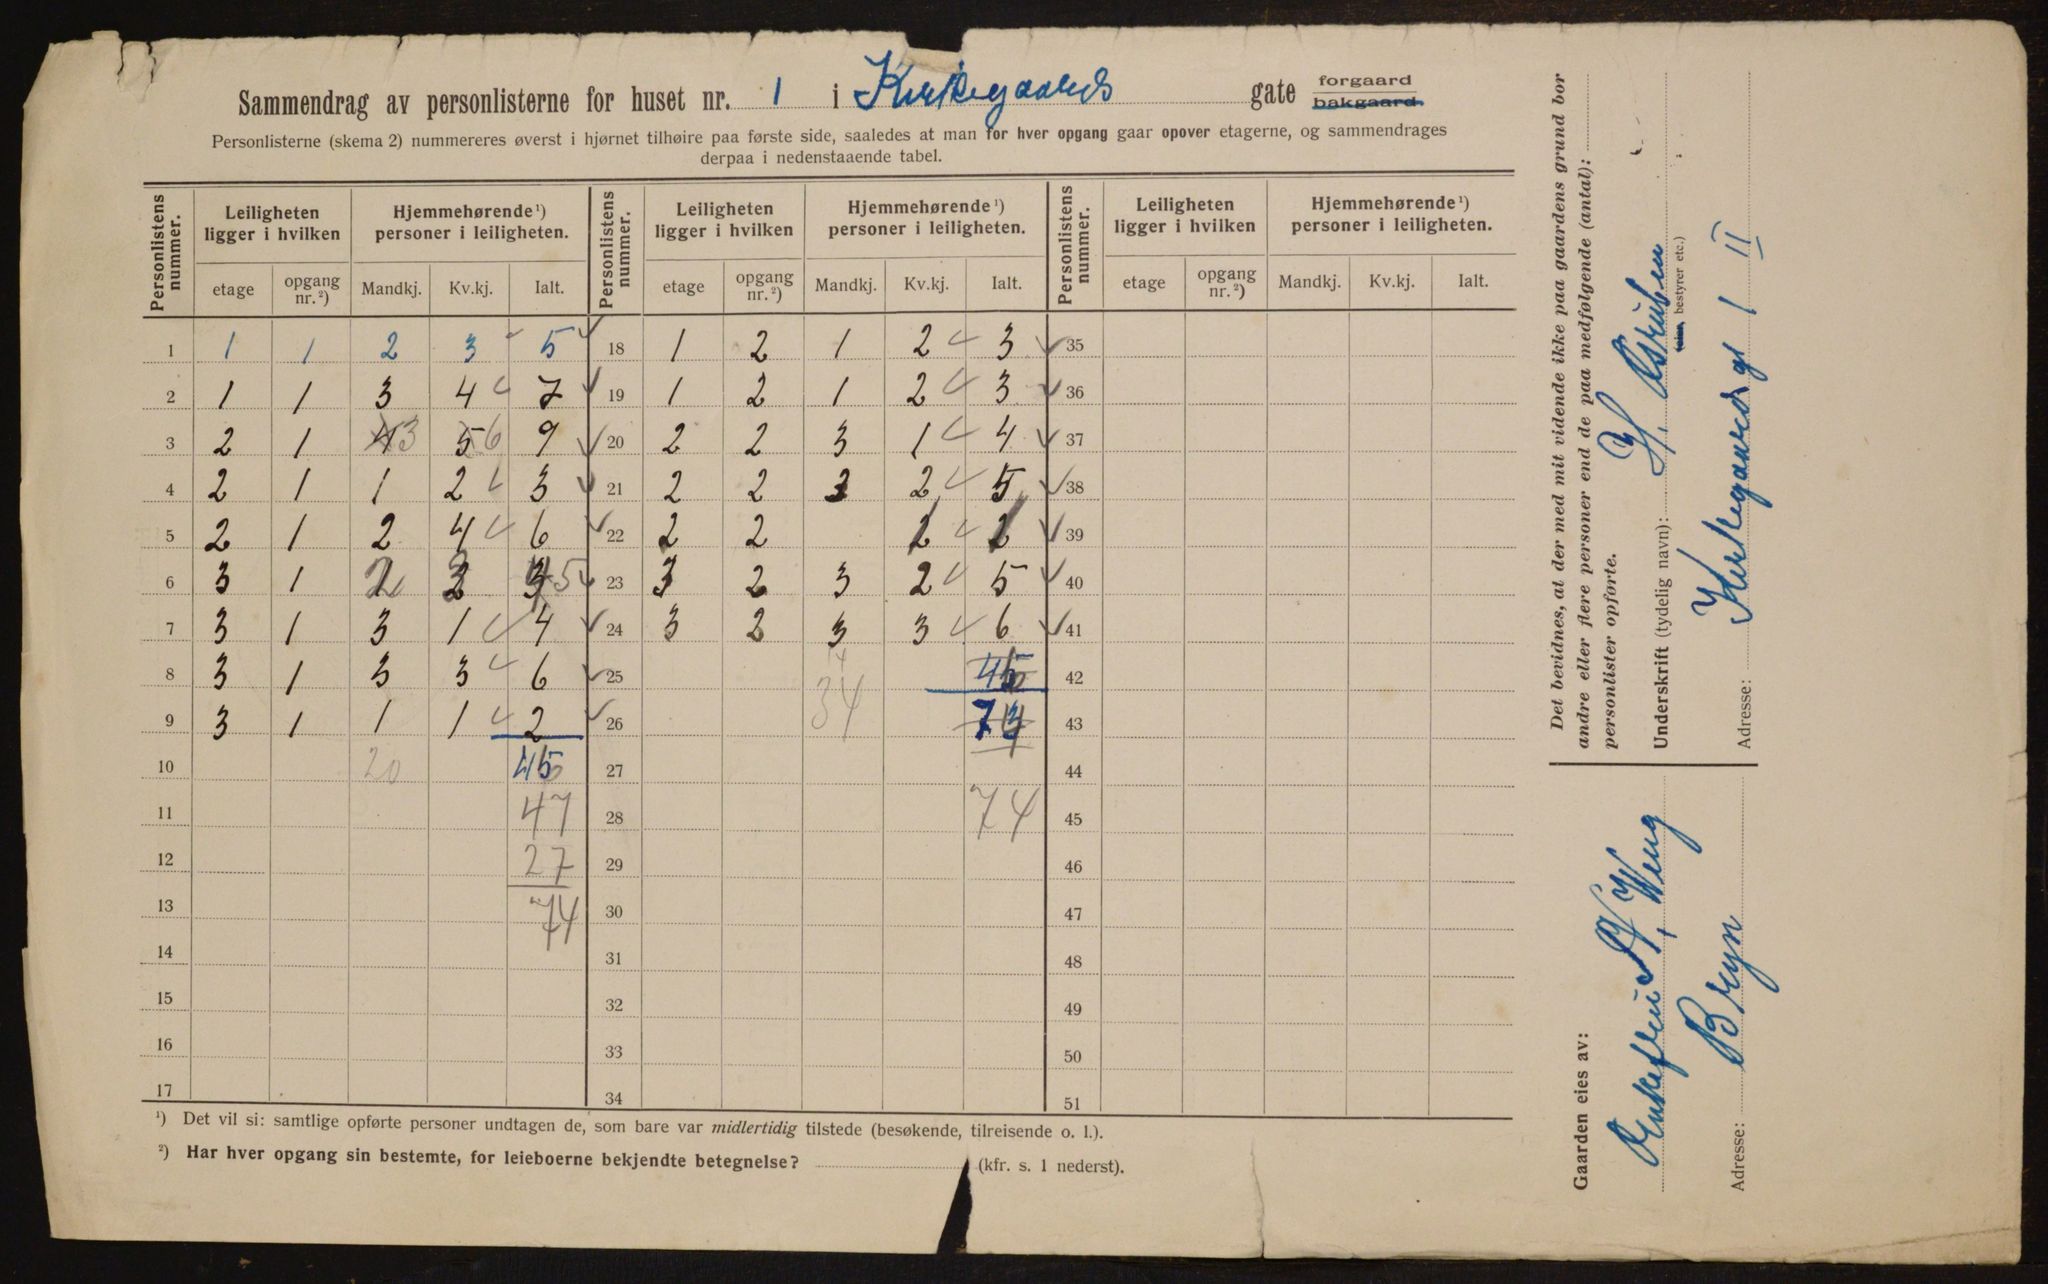 Sammendrag av personlisterne for huset nr. 1 i Kirkegaards gate forgaard bakgaard.
Personlisterne (skema 2) nummereres øverst i hjørnet tilhøire paa første side, saaledes at man for hver opgang gaar opover etagerne, og sammendrages
derpaa i nedenstaaende tabel.
Personlistens nummer. Leiligheten ligger i hvilken Hjemmehørende¹) personer i leiligheten. Personlistens nummer. Leiligheten ligger i hvilken Hjemmehørende¹) personer i leiligheten. Personlistens nummer. Leiligheten ligger i hvilken Hjemmehørende¹) personer i leiligheten.
etage opgang nr.²) Mandkj. Kv.kj. Ialt. etage opgang nr.²) Mandkj. Kv.kj. Ialt. etage opgang nr.²) Mandkj. Kv.kj. Ialt.
1 1 1 2 3 5 18 1 2 1 2 3 35
2 1 1 3 4 7 19 1 2 1 2 3 36
3 2 1 4 3 5 6 9 20 2 2 3 1 4 37
4 2 1 1 2 3 21 2 2 3 2 5 38
5 2 1 2 4 6 22 2 2 39
6 3 1 2 5 23 3 2 3 2 5 40
7 3 1 3 1 4 24 3 2 3 3 6 41
8 3 1 3 3 6 25 42
9 3 1 1 1 2 26 34 43
10 20 45 27 44
11 47 28 74 45
12 27 29 46
13 74 30 47
14 31 48
15 32 49
16 33 50
17 34 51
¹) Det vil si: samtlige opførte personer undtagen de, som bare var midlertidig tilstede (besøkende, tilreisende o. l.).
²) Har hver opgang sin bestemte, for leieboerne bekjendte betegnelse? (kfr. s. 1 nederst).
Det bevidnes, at der med mit vidende ikke paa gaardens grund bor
andre eller flere personer end de paa medfølgende (antal):
personlister opførte.
Underskrift (tydelig navn): H.
bestyrer etc.)
Adresse: Kirkegaardsgt 1 II
Gaarden eies av:
Enkefru A. Weng
Adresse: Bryn